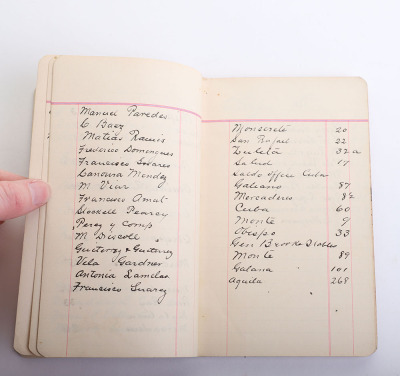 Manuel Paredes
C Baez
Matias Ramis
Federico Domenenes
Francisco Linares
Canoura Mendez
M Viar
Francisco Amat
Stockell Pearcy
Perez y Comp
M Driscoll
Gutierrez & Gutierrez
Vila Gardner
Antonia Lamelas
Francisco Suarez
Monserate 20
San Rafael 22
Zulueta 32 a
Salud 17
Office Cuba
Galiano 87
Mercaderes 8½
Cuba 60
Monte 9
Obispo 33
Gen
Monte 89
Galiana 101
Aguila 268